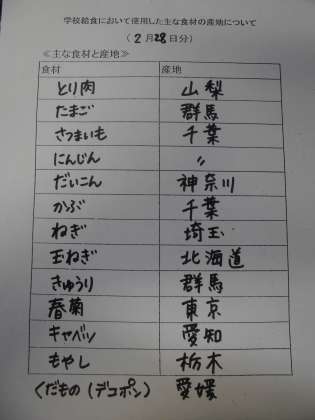 学校給食において使用した主な食材の産地について
(2月28日分)
≪主な食材と産地≫
食材 産地
とり肉 山梨
たまご 群馬
さつまいも 千葉
にんじん 〃
だいこん 神奈川
かぶ 千葉
ねぎ 埼玉
玉ねぎ 北海道
きゅうり 群馬
春菊 東京
キャベツ 愛知
もやし 栃木
くだもの(デコポン) 愛媛